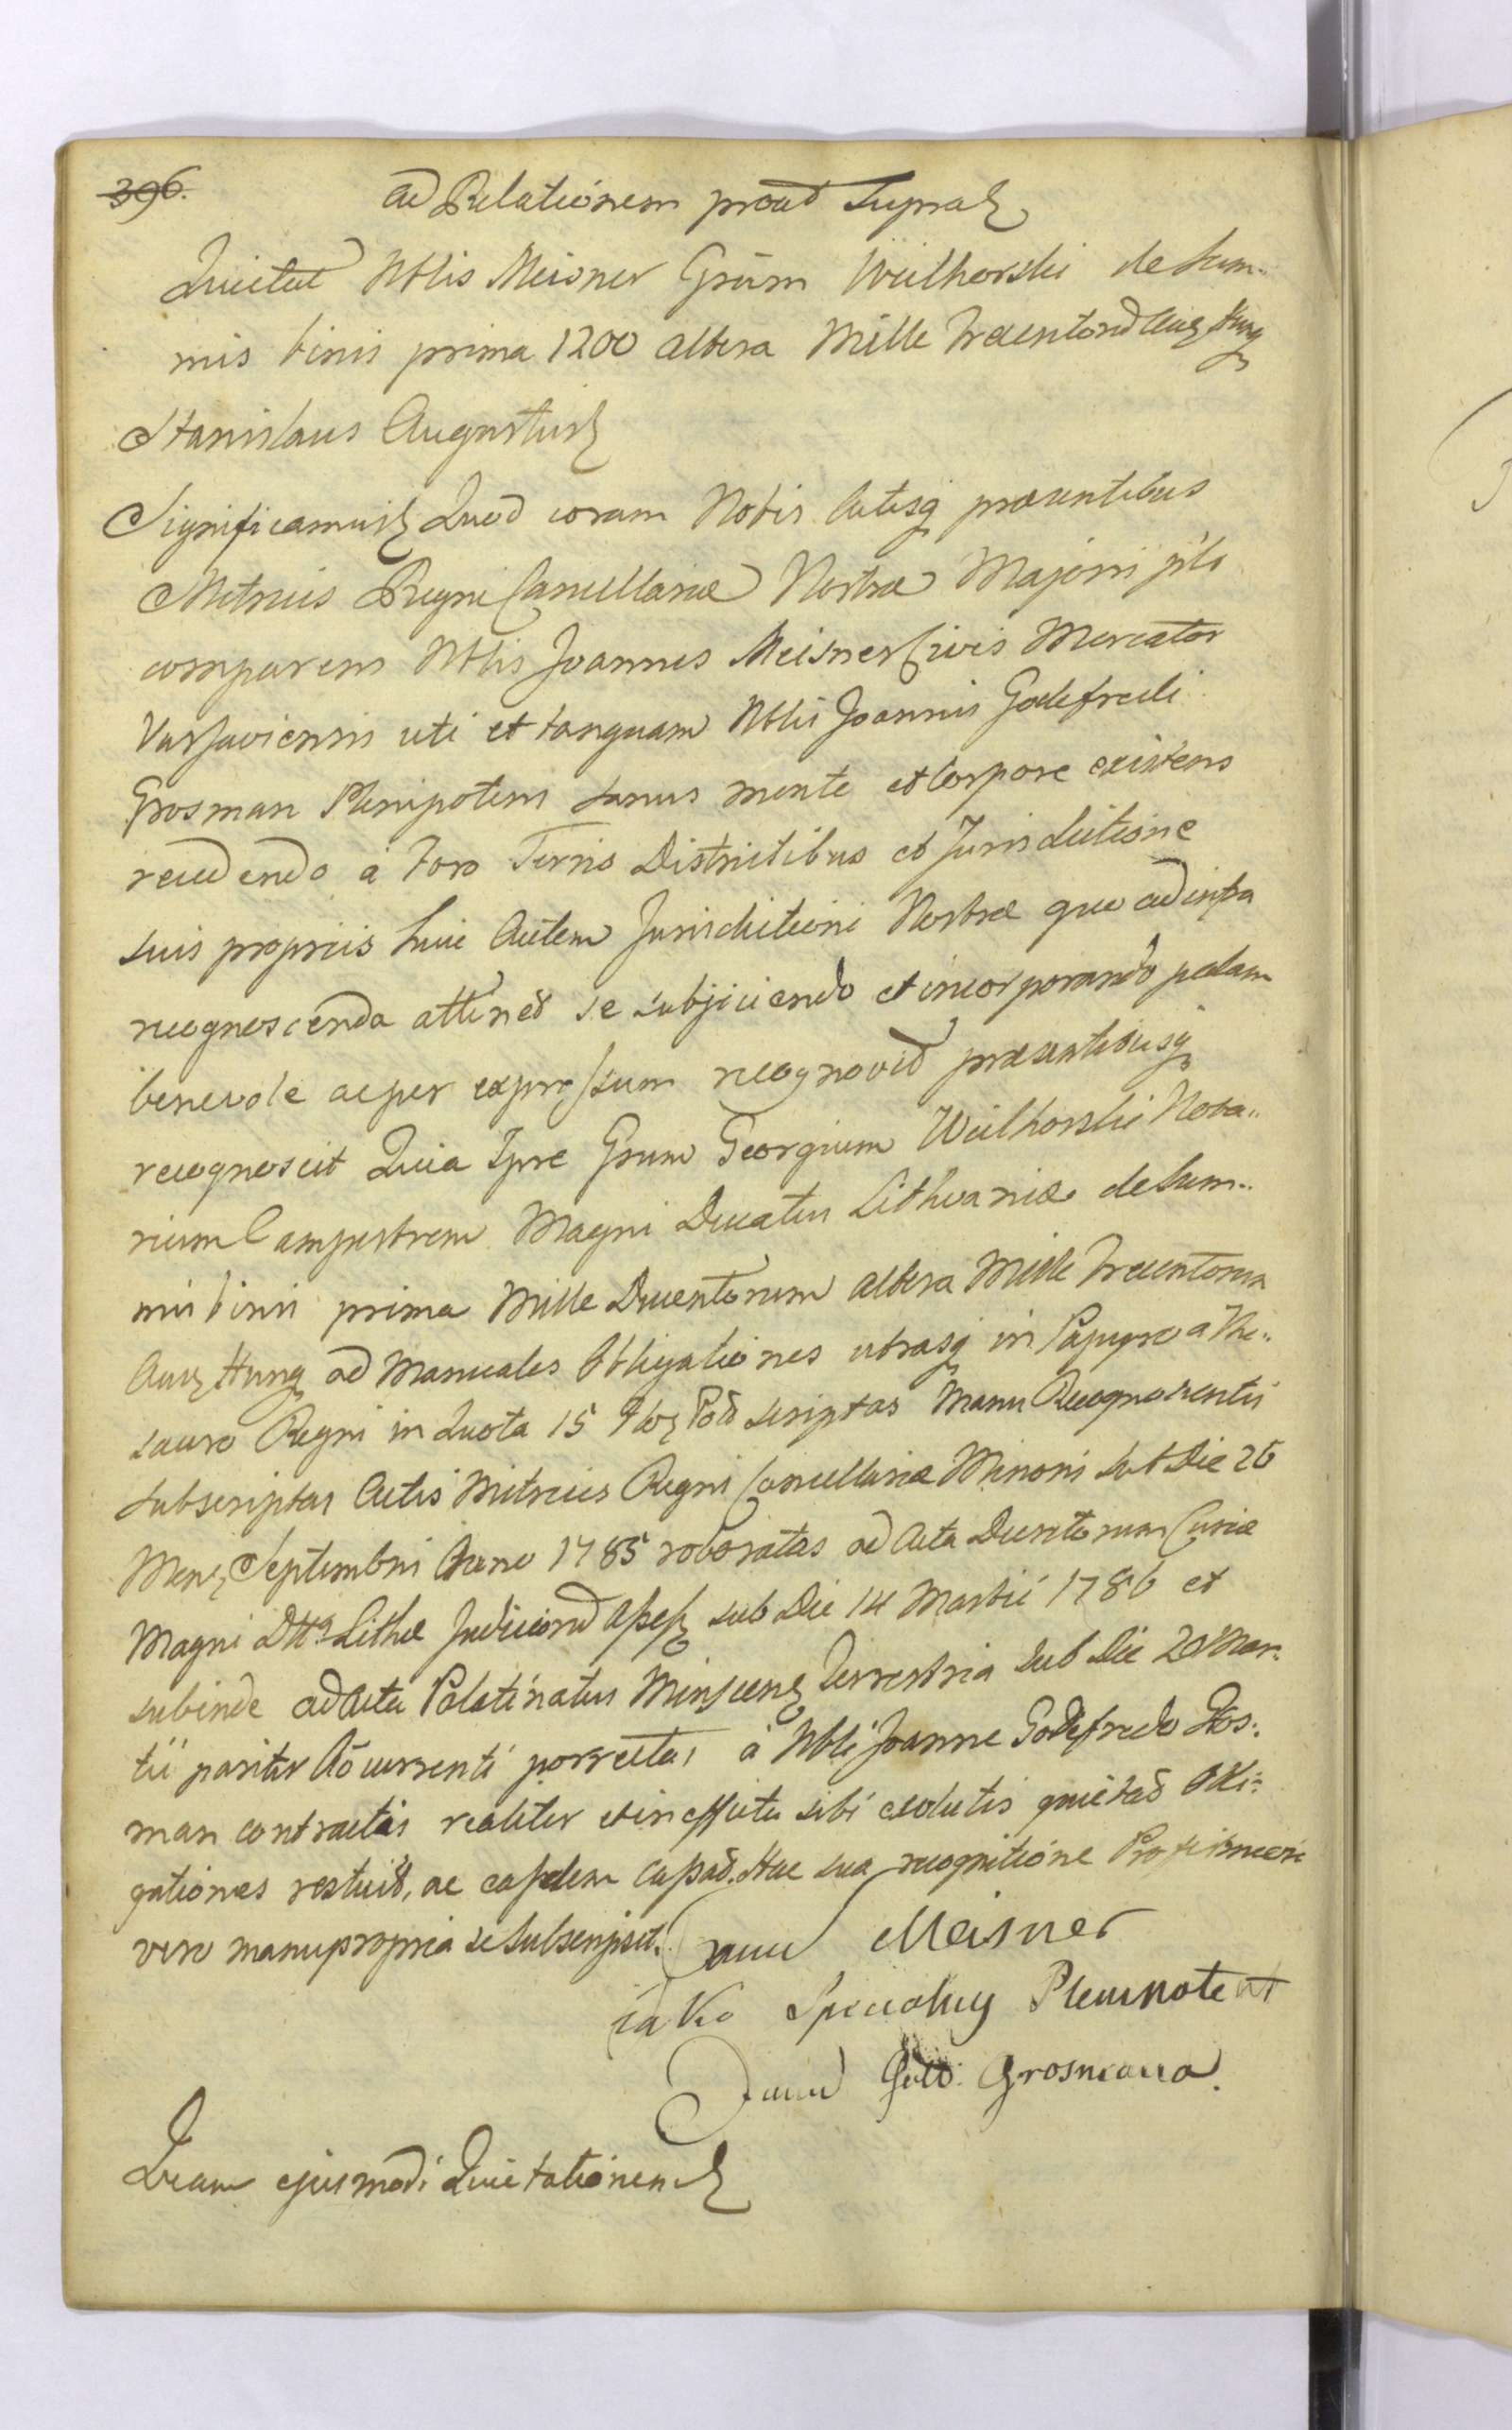 396.
ad Relationem prout Supra
Quietat Nblis Meisner Grum Wielhorski de Sum-
mis binis prima 1200 altera Mille Trecentorum Aur Hung
Stanislaus Augustus
Significamus Quod coram Nobis Actisq praesentibus
Metrices Regni Cancellariae Nostrae Majoris
comparens Nblis Joannes Meisner Civis Mercator
Varsaviensis uti et tanquam Nblis Joannis Godefredi
Grosman Plenipotens sanus mente et Corpore existens
recedendo a Foro Terris Districtibus et Jurisdictione
suis propriis huic Autem Jurisdictioni Nostrae quo ad infra
recognoscenda attinet se subjiciendo et incorporando palam
benevole ac per expressum recognovit praesentibusq
recognoscit Quia Ipse Grum Georgium Wielhorski Nota-
rium Campestrem Magni Ducatus Lithvaniae de Sum-
mis binis prima Mille Ducentorum altera Mille Trecentorum
Aur Hung ad Manuales Obligationes utrasq in Papyro a The-
sauro Regni in Quota 15 Pol scriptas Manu Recognoscentis
subscriptas Actis Metrices Regni Cancellariae Minoris sub Die 26
Mens Septembris Anno 1785 roboratas ad Acta Decretorum Curiae
Magni Dttus Lithae Judiciorum Assess sub Die 14 Martii 1786 et
subinde ad Acta Palatinatus Minscens Terrestria sub Die 20 Mar-
tii pariter Ao currenti porrectas a Nbli Joanne Godefredo Gros-
man contractis realiter et in effectu sibi exolutis quietat Obli-
gationes restuit, ac easdem cassat. Hac sua recognitione Profimeri
vero manu propria se Subscripsit. Jann Meisner
jako Specialny Plenipotent
Jann Gott: Grosmana.
Quam ejusmodi Quietationem